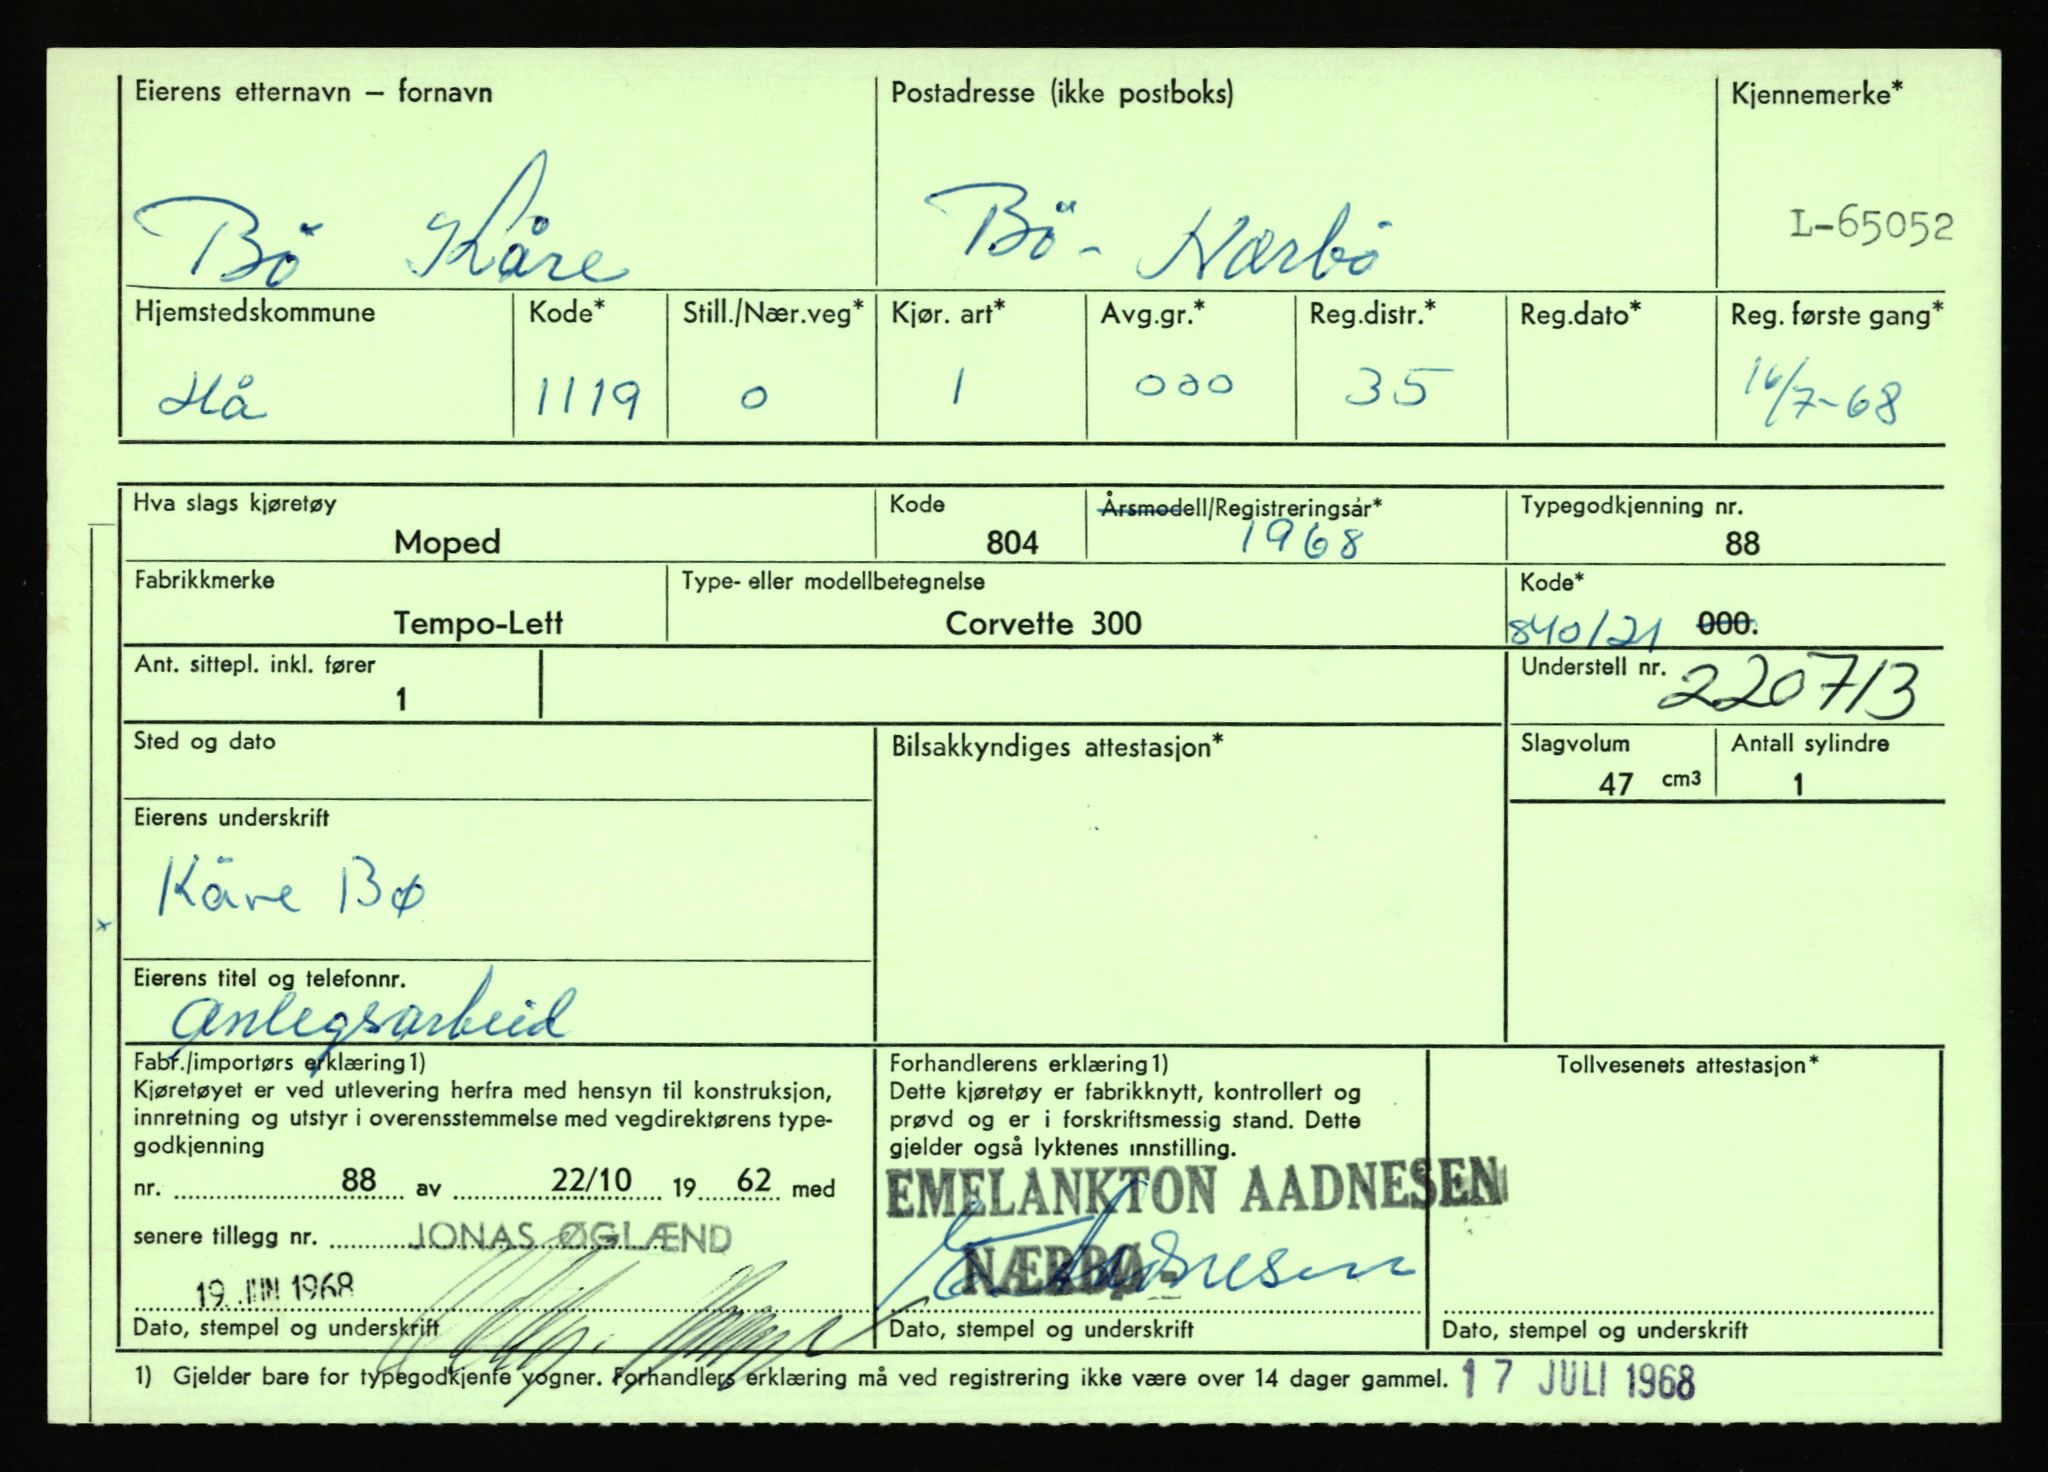 Eierens etternavn – fornavn Postadresse (ikke postboks) Kjennemerke*
Bö Kåre Bö - Nærbö L-65052
Hjemstedskommune Kode* Still./Nær.veg* Kjør. art* Avg.gr.* Reg.distr.* Reg.dato* Reg. første gang*
Hå 1119 0 1 000 35 16/7-68
Hva slags kjøretøy Kode Årsmodell/Registreringsår* Typegodkjenning nr.
Moped 804 1968 88
Fabrikkmerke Type- eller modellbetegnelse Kode*
Tempo-Lett Corvette 300 840/21 000.
Ant. sittepl. inkl. fører Understell nr.
1 220713
Sted og dato Bilsakkyndiges attestasjon* Slagvolum Antall sylindre
47 cm3 1
Eierens underskrift
Kåre Bø
Eierens titel og telefonnr.
anlegsarbeid
Fabr./importørs erklæring1)
Kjøretøyet er ved utlevering herfra med hensyn til konstruksjon,
innretning og utstyr i overensstemmelse med vegdirektørens type-
godkjenning
nr. 88 av 22/10 19 62 med
senere tillegg nr. JONAS ØGLÆND
19 JUN 1968
Dato, stempel og underskrift
Forhandlerens erklæring1)
Dette kjøretøy er fabrikknytt, kontrollert og
prøvd og er i forskriftsmessig stand. Dette
gjelder også lyktenes innstilling.
EMELANKTON AADNESEN
NÆRBØ
E. Aadnesen
Dato, stempel og underskrift
Tollvesenets attestasjon*
Dato, stempel og underskrift
1) Gjelder bare for typegodkjente vogner. Forhandlers erklæring må ved registrering ikke være over 14 dager gammel. 17 JULI 1968